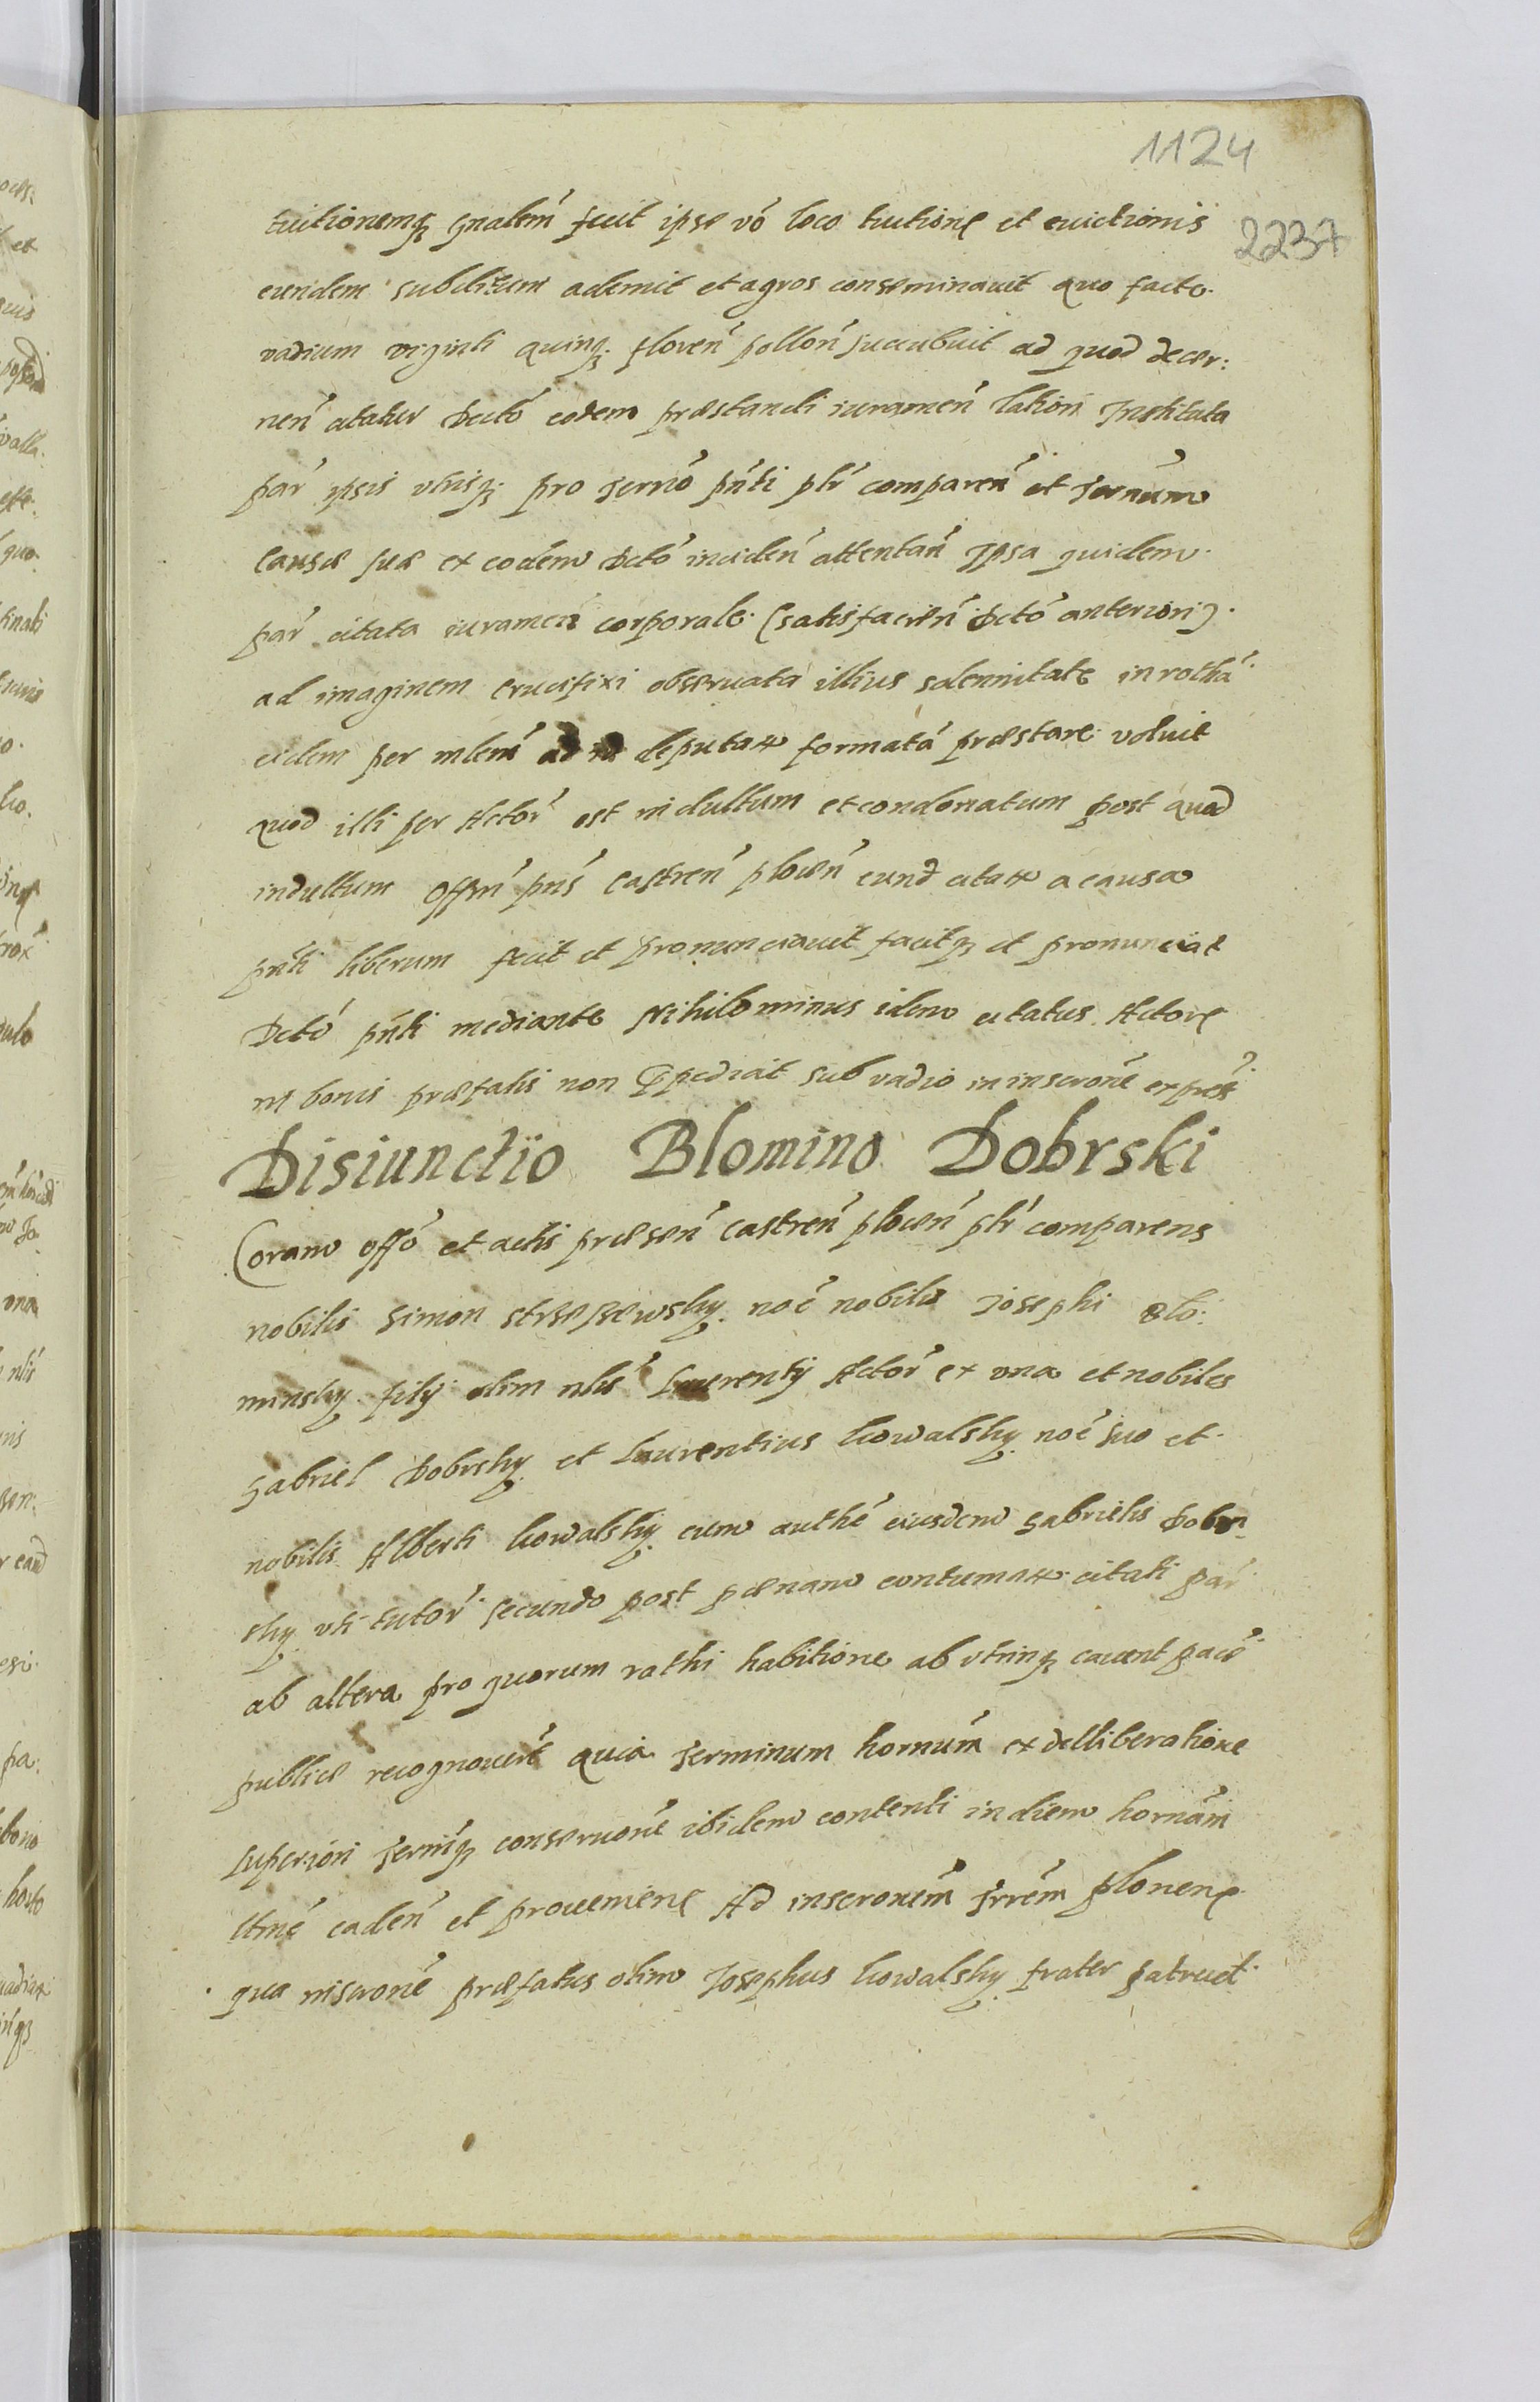 1124
2237
tuitionemq₃ gnalem̃ fecit ipse võ loco tuitionis et euictionis
eundem subditum ademit et agros conseminauit quo facto
vadium viginti quinq₃ floren̄ pollon̄ succubuit ad quod decer:
nen̄ citatus Dctõ eodem præstandi iuramen̄ lationi Instituta
par̄ ipsis vtrisq₃ pro termõ pn̄ti ptr̄ comparen̄ et termnum
causæ suæ ex eodem Dctõ inciden̄ attentan̄ Ipsa quidem
par̄ citata iuramen̄ corporale (satisfacien̄ Dctõ anteriori)
ad imaginem crucifixi obseruata illius solennitate in rotha
eidem per mlem̄ ad id deputat formatā præstare voluit
quod illi per Actor̄ est indultum et condonatum post quod
indultum Offm̄ pns̄ Castren̄ plocen̄ eund citat a causa
pn̄ti liberum fecit et pronunciauit facitq₃ et pronunciat
Dctõ pn̄ti mediante Nihilominus idem citatus Actorē
in bonis præfatis non impediat sub vadio in inscrone expres̄
Disiunctio Blomino Dobrski
Coram offõ et actis præsen̄ castren̄ plocen̄ ptr̄ comparens
nobilis Simon noẽ nobilis Josephi Blo:
minsky filij olim nlis̄ Laurentij Actor̄ ex vna et nobiles
Gabriel Dobrsky et Laurentius Kowalsky noẽ suo et
nobilis Alberti Kowalsky cum authẽ eiusdem Gabrielis Dobr:
sky vti tutor̄ secundo post pænam contumat citati par̄
ab altera pro quorum rathi habitione ab vtrinq₃ cauent
publice recognouert̄ quia terminum hornum̄ ex delliberatione
superiori termiq₃ conseruone ibidem contenti in diem hornam̄
ltmẽ caden̄ et prouenien̄ Ad inscronem̄ trrem̄ plonen̄
qua inscrone præfatus olim Josephus Kowalsky frater patruel